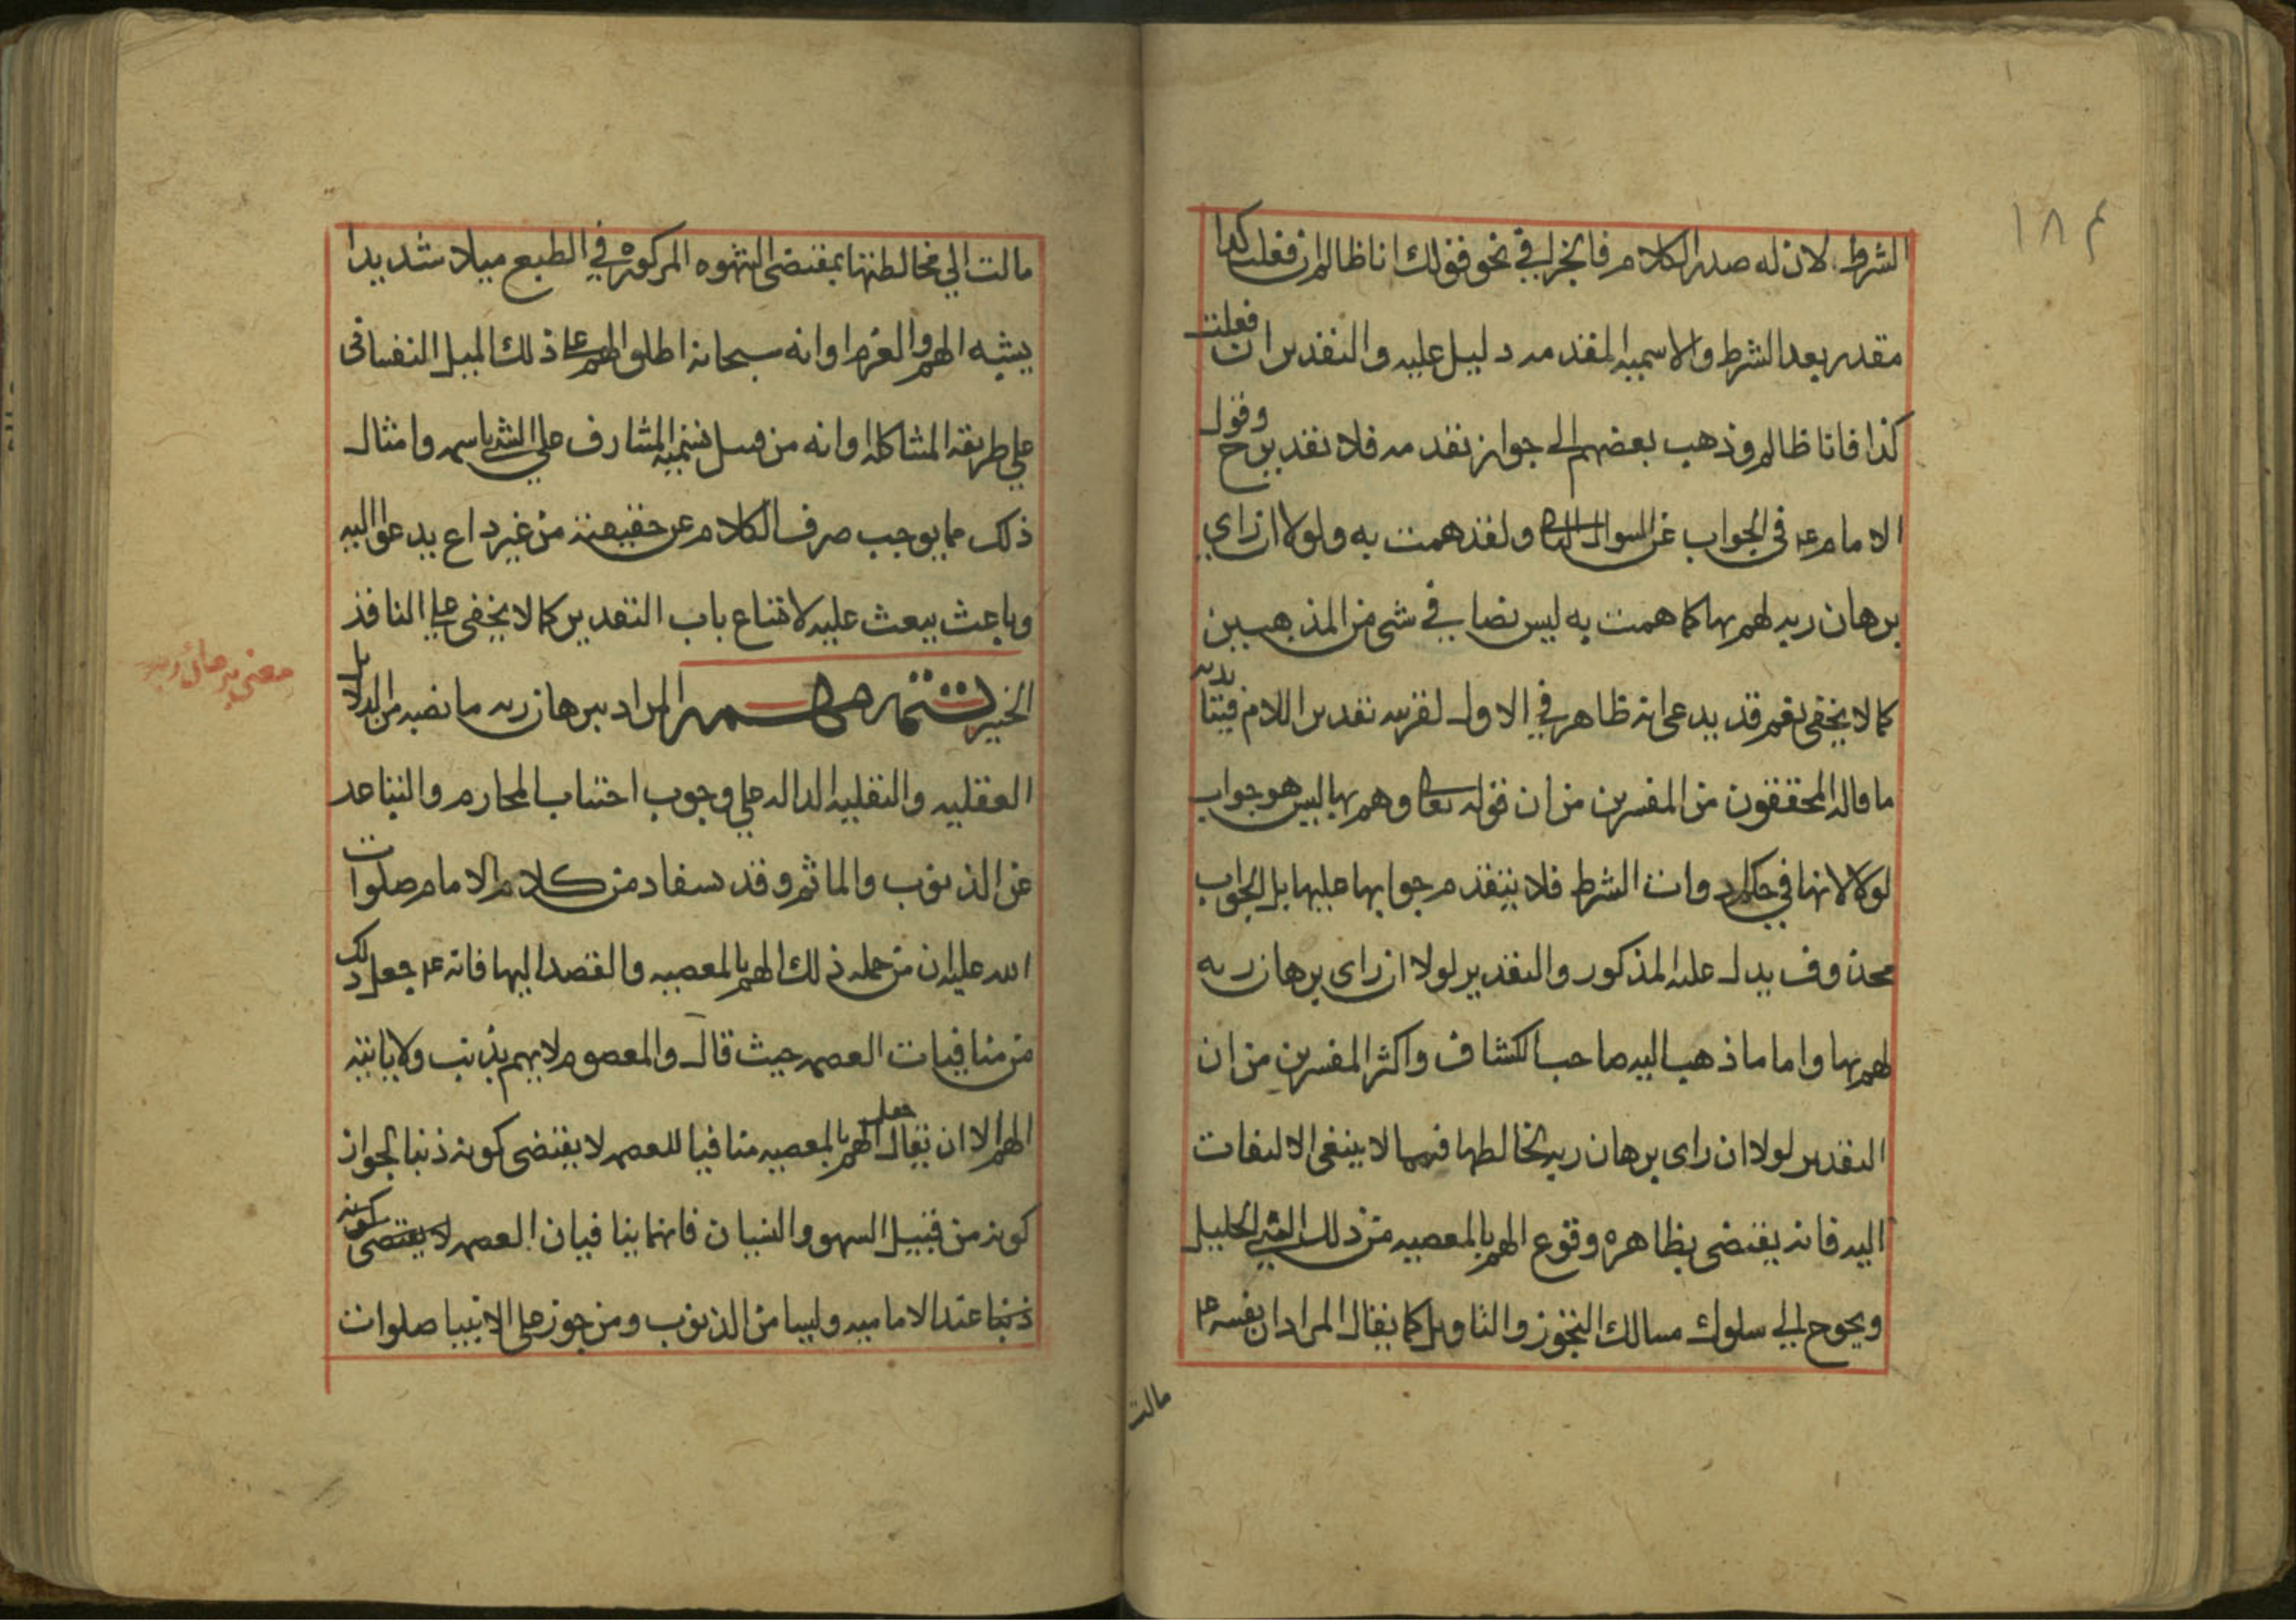 ١٨٤
الشرط لان له صدر الكلام فالجزا في نحو قولك انا ظالم ان فعلت كذا
مقدر بعد الشرط والاسميه المقدمه دليل عليه والتقدير ان فعلت
كذا فانا ظالم وذهب بعضهم الى جواز تقدمه فلا تقدير ح وقول
الامام ع في الجواب عن السوال ولقد همت به ولولا ان راي
برهان ربه لهم بها كما همت به ليس نصا في شي من المذهبين
كما لا يخفى نعم قد يدعى انه ظاهر في الاول لقرينه تقدير اللام فيتايد به
ما قاله المحققون من المفسرين من ان قوله تعالى وهم بها ليس هو جواب
لولا لانها في حكم ادوات الشرط فلا يتقدم جوابها عليها بل الجواب
محذوف يدل عليه المذكور والتقدير لولا ان راى برهان ربه
لهم بها واما ما ذهب اليه صاحب الكشاف واكثر المفسرين من ان
التقدير لولا ان راى برهان ربه لخالطها فمما لا ينبغي الالتفات
اليه فانه يقتضى بظاهره وقوع الهم بالمعصيه من ذلك النبي الجليل
ويحوج الى سلوك مسالك التجوز والتاويل كما يقال المراد ان نفسه ع
مالت
مالت الي مخالطتها بمقتضى الشهوه المركوزه في الطبع ميلا شديدا
يشبه الهم والعزم او انه سبحانه اطلق الهم على ذلك الميل النفساني
على طريقه المشاكله او انه من قبيل تسميه المشارف على الشي باسمه وامثال
ذلك مما يوجب صرف الكلام عن حقيقته من غير داع يدعو اليه
وباعث يبعث عليه لاتساع باب التقدير كما لا يخفى على الناقد
الخبير المراد ببرهان ربه ما نصبه من الدلايل
العقليه والنقليه الداله على وجوب اجتناب المحارم والتباعد
عن الذنوب والماثم وقد يستفاد من كلام الامام صلوات
الله عليه ان من جمله ذلك الهم بالمعصيه والقصد اليها فانه ع جعل ذلك
من منافيات العصمه حيث قال والمعصوم لا يهم بذنب ولا ياتيه
الهم الا ان يقال جعل الهم بالمعصيه منافيا للعصمه لا يقتضى كونه ذنبا لجواز
كونه من قبيل السهو والنسيان فانهما ينافيان العصمه لا يقتضى كونه
ذنبا عند الاماميه وليسا من الذنوب ومن جوز على الانبيا صلوات
معنى برهان ربه